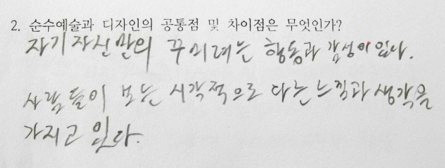 2. 순수예술과 디자인의 공통점 및 차이점은 무엇인가?
자기 자신만의 꾸미려는 행동과 감성이 있다.
사람들이 보는 시각적으로 다른 느낌과 생각을
가지고 있다.